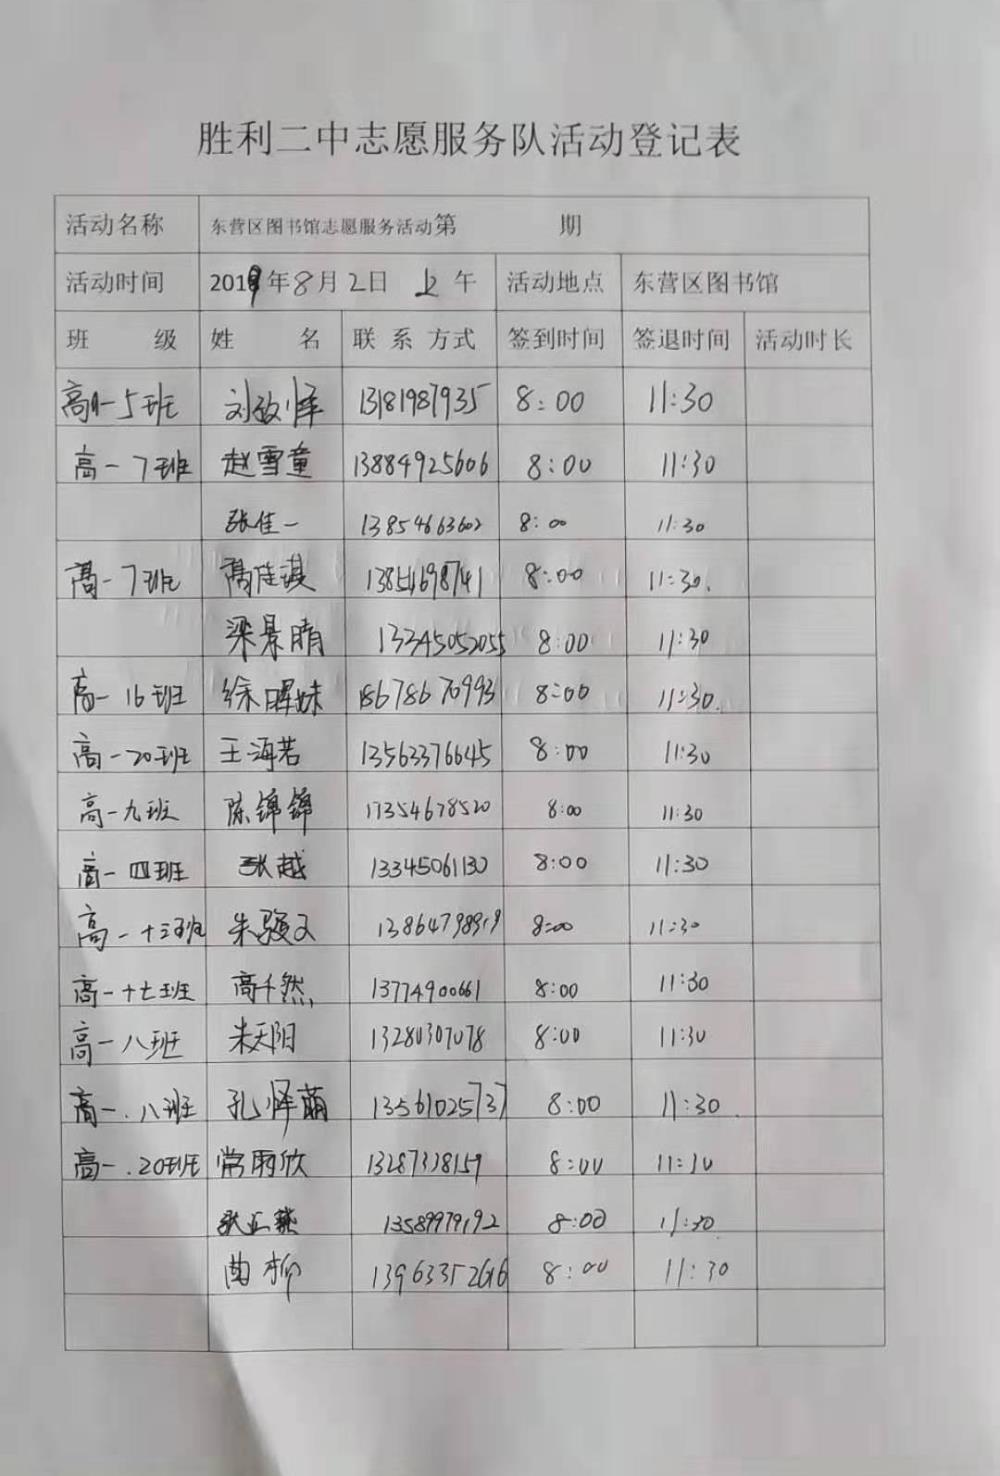 胜利二中志愿服务队活动登记表
活动名称 东营区图书馆志愿服务活动第 期
活动时间 2019年8月2日 上午 活动地点 东营区图书馆
班 级 姓 名 联 系 方式 签到时间 签退时间 活动时长
高一5班 刘 13181987935 8:00 11:30
高一7班 赵雪童 13884925606 8:00 11:30
张佳一 13854663602 8:00 11:30
高一7班 高佳琪 13854698741 8:00 11:30.
梁景晴 13345052055 8:00 11:30
高一16班 徐 18678670993 8:00 11:30.
高一20班 王海若 13563376645 8:00 11:30
高一九班 陈锦锦 17354678520 8:00 11:30
高一四班 张越 13345061130 8:00 11:30
高一十三班 朱骏又 8:00 11:30
高一十七班 高千然 13774900661 8:00 11:30
高一八班 朱天阳 13280307078 8:00 11:30
高一.八班 孔怿萌 13561025737 8:00 11:30
高一.20班 常雨欣 13287328159 8:00 11:30
张正燕 13589979192 8:00 11:30
曲柳 8:00 11:30